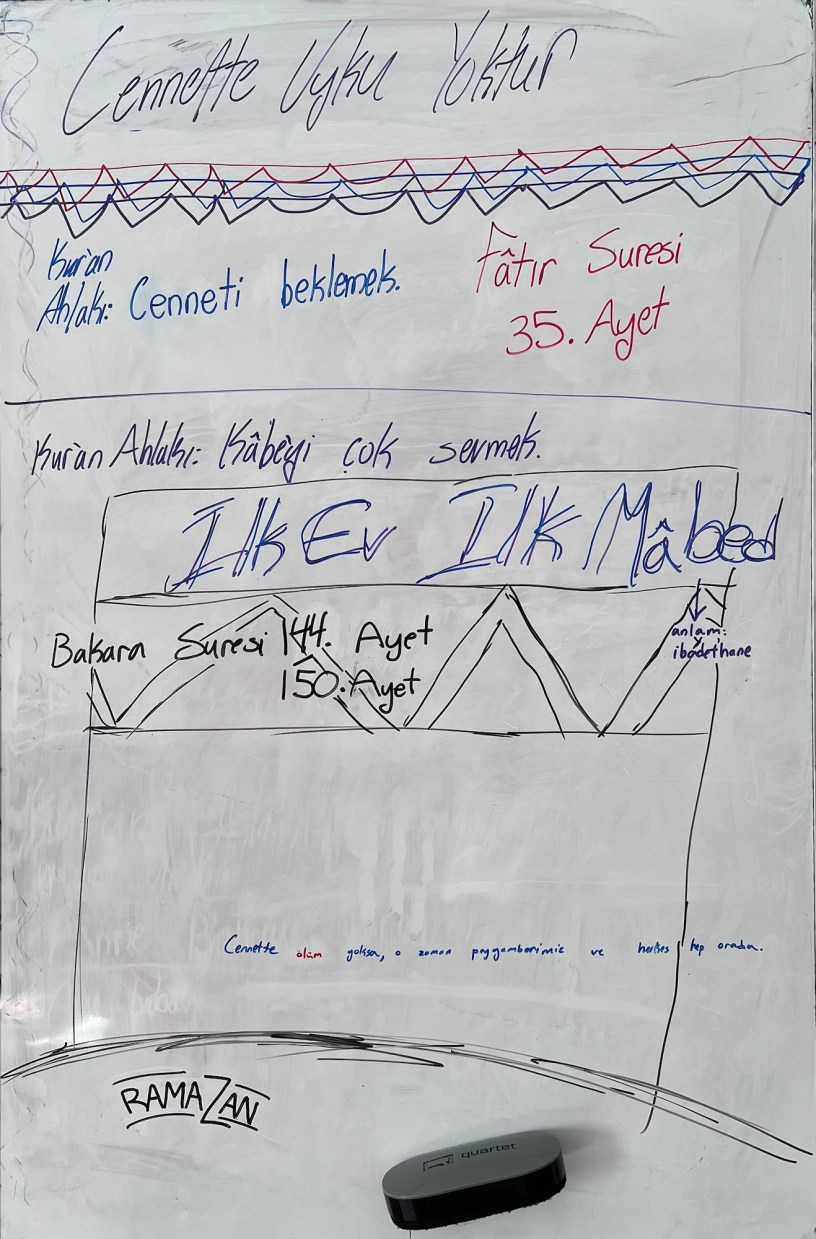 Cennette Uyku Yoktur
Kur'an
Ahlakı: Cenneti beklemek.
Fâtır Suresi
35. Ayet
Kur'an Ahlakı: Kâbeyi çok sevmek.
Ilk Ev Ilk Mâbed
anlam:
ibadethane
Bakara Suresi 144. Ayet
150. Ayet
Cennette ölüm yoksa, o zaman peygamberimiz ve herkes hep orada.
RAMAZAN
quartet